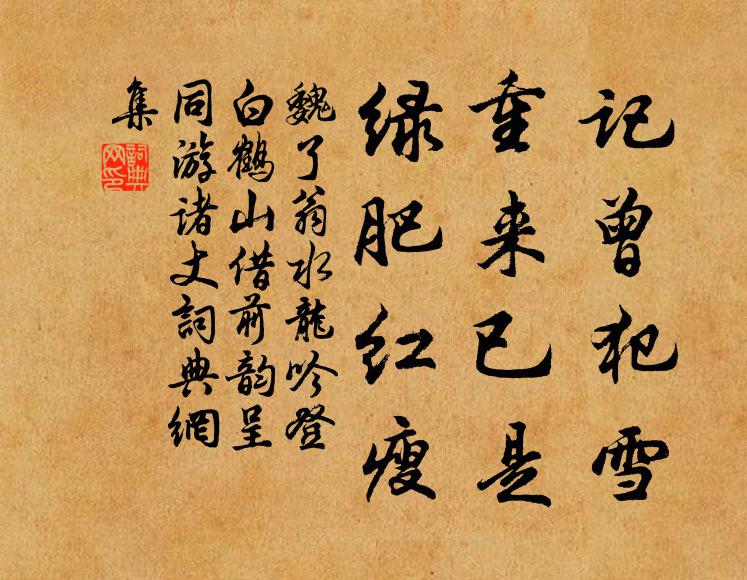 记曾犯雪
重来已是
绿肥红瘦
魏了翁水龍吟登
白鹤山借前韵呈
同游诸丈詞典網
集
詞典
网印